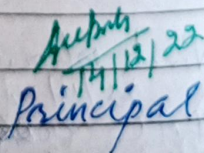 14/12/22
Principal